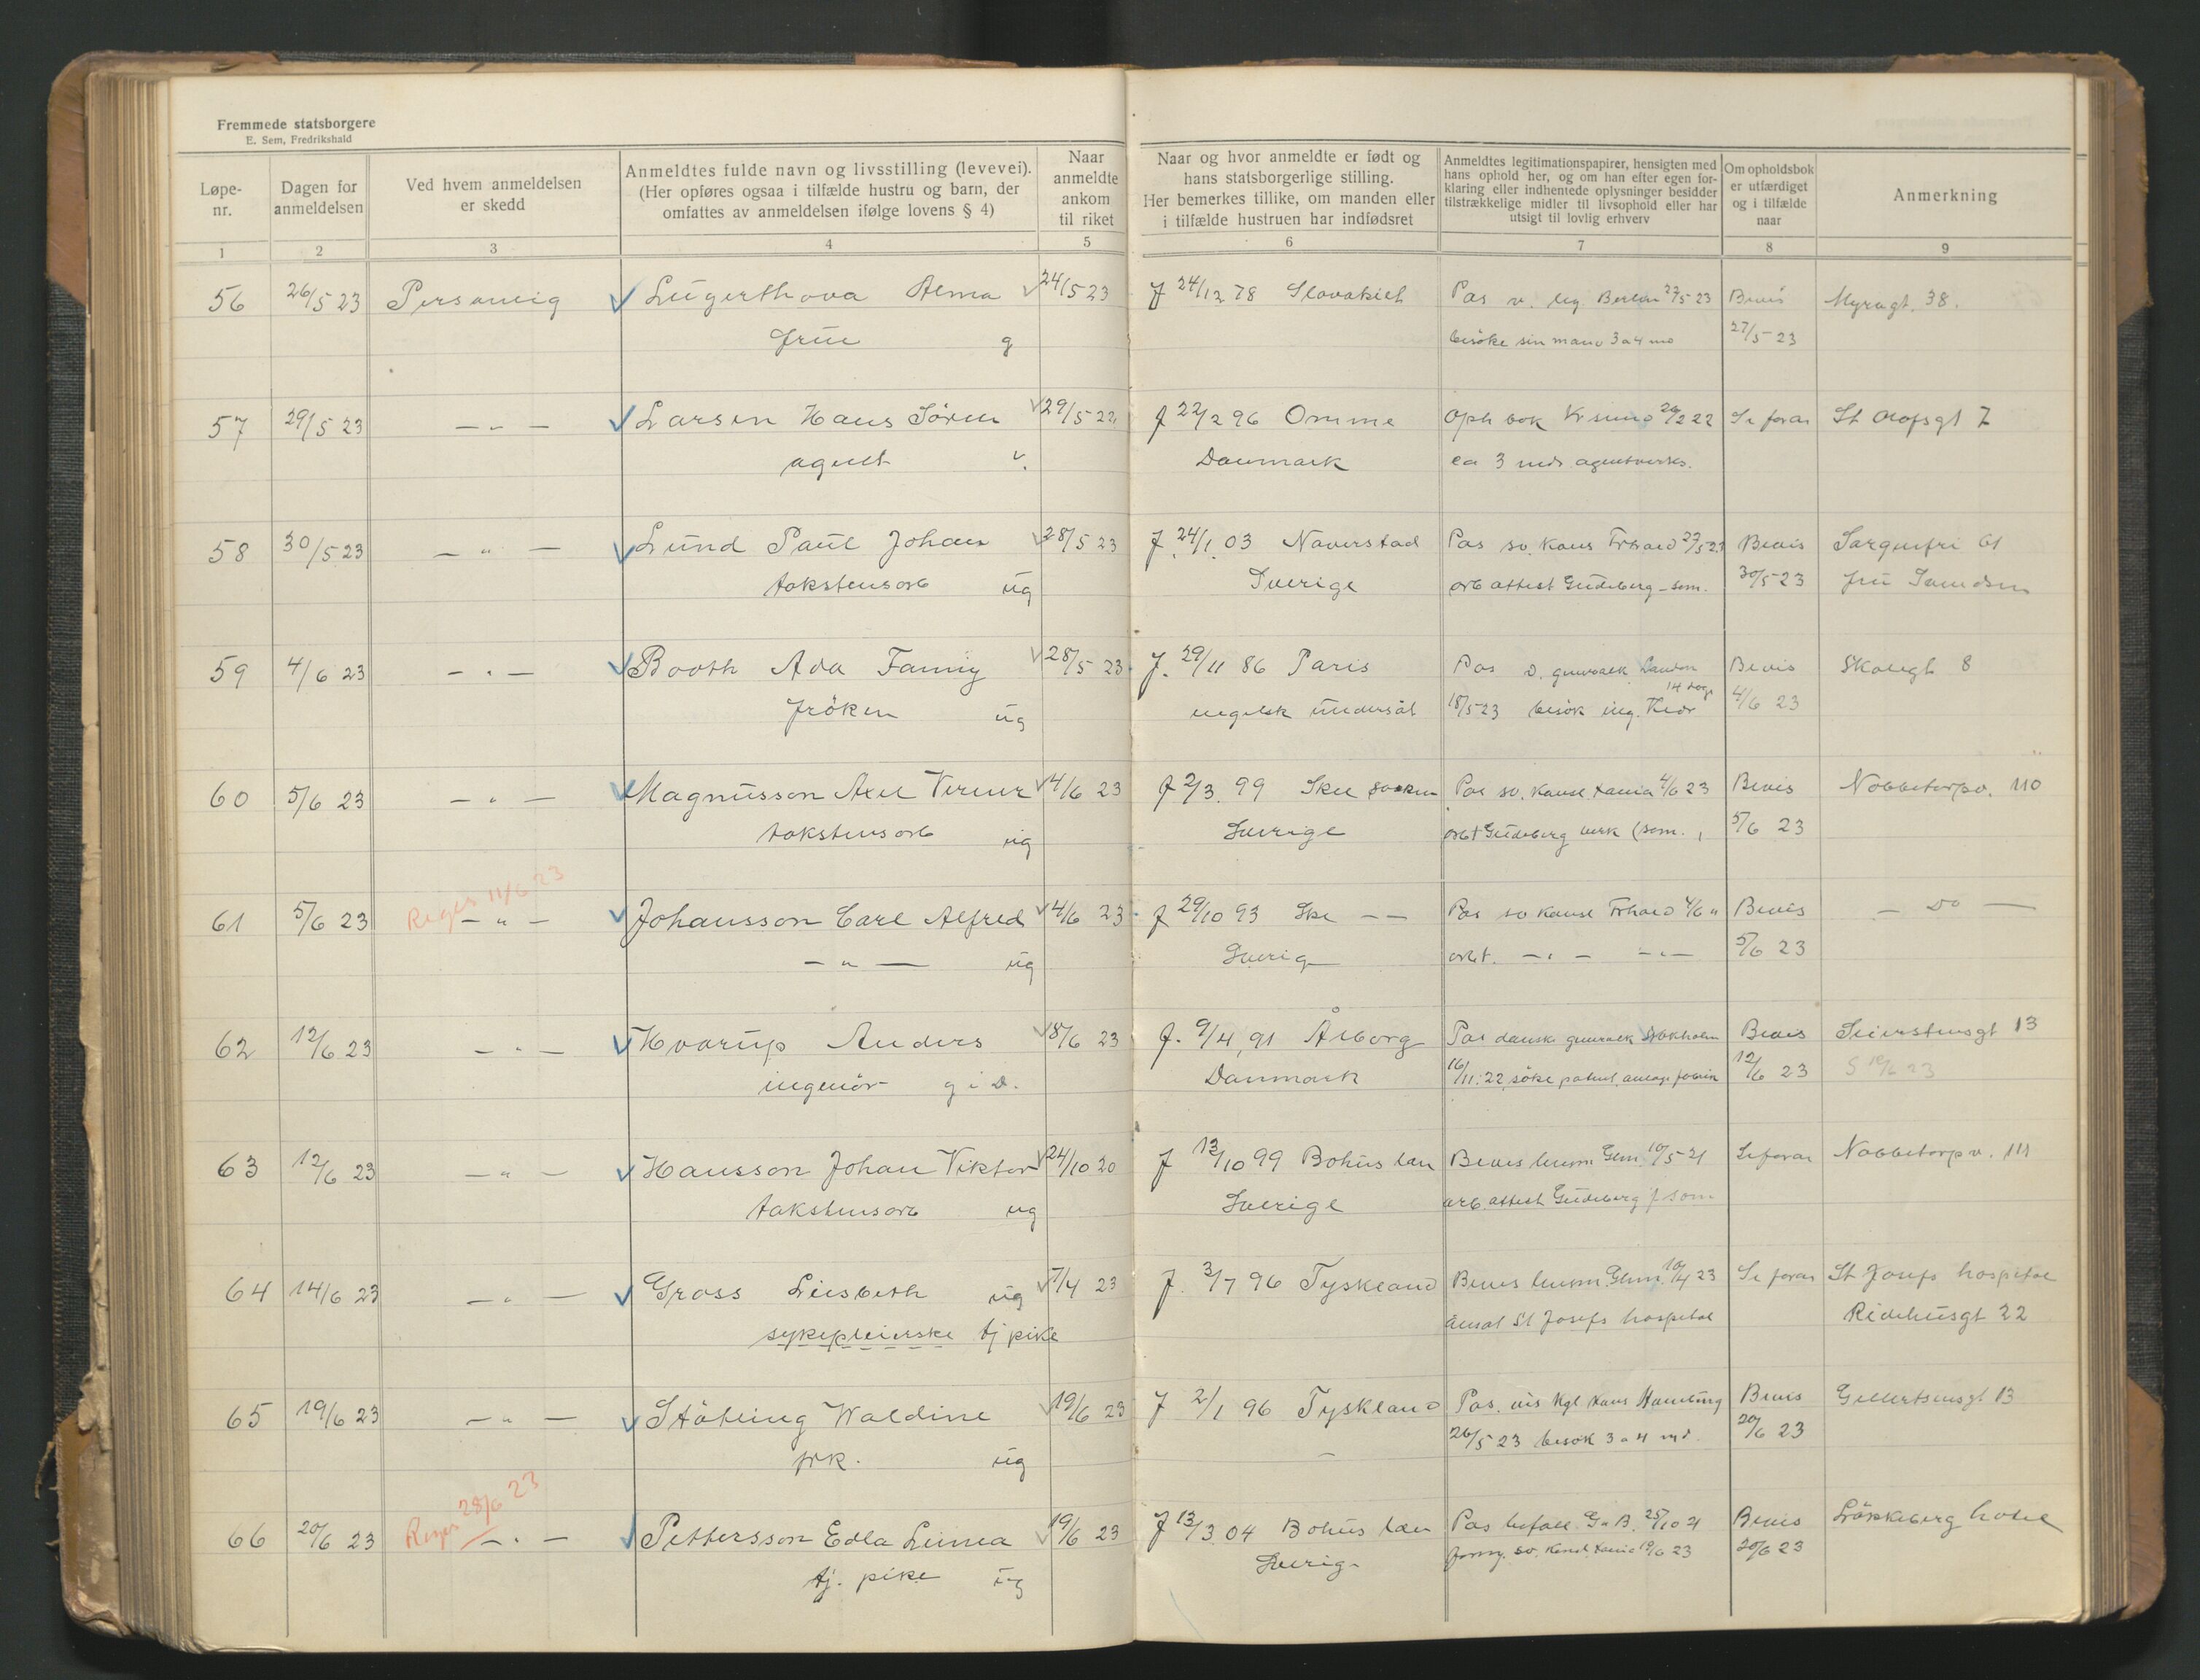 Fremmede statsborgere
E. Sem, Fredrikshald
Løpe-nr.
Dagen for anmeldelsen
Ved hvem anmeldelsen er skedd
Anmeldtes fulde navn og livsstilling (levevei).
(Her opføres ogsaa i tilfælde hustru og barn, der
omfattes av anmeldelsen ifølge lovens § 4)
Naar anmeldte ankom til riket
Naar og hvor anmeldte er født og
hans statsborgerlige stilling.
Her bemerkes tillike, om manden eller
i tilfælde hustruen har indfødsret
Anmeldtes legitimationspapirer, hensigten med
hans ophold her, og om han efter egen for-
klaring eller indhentede oplysninger besidder
tilstrækkelige midler til livsophold eller har
utsigt til lovlig erhverv
Om opholdsbok
er utfærdiget
og i tilfælde
naar
Anmerkning
1 2 3 4 5 6 7 8 9
56 26/5 23 Personlig Lugerthova Alma 24/5 23 f 24/12 78 Slovakiet Pas v. leg Berlin 23/5 23 Bevis Myragt. 38.
frue g besöke sin mann 3 a 4 mo 27/5-23
57 29/5 23 — " — Larsen Hans Sören 29/5 22 f 22/2 96 Omme Oph bok Kr sund 20/2 22 Se foran St Olofsgt 7
agent v. Danmark ca 3 mds agentvirks.
58 30/5 23 — " — Lund Paul Johan 28/5 23 f. 24/1 03 Naverstad Pas sv. Kons Frhald 27/5 23 Bevis Sorgenfri 61
takstensarb ug Sverige arb attest Gudeberg - som. 30/5-23 fru
59 4/6 23 — " — Booth Ada Fanny 28/5 23 f. 29/11 86 Paris Pas v. generalk London Bevis Skolegt 8
fröken ug engelsk undersåt 18/5-23 besök ing. 14 dage 4/6 23
60 5/6 23 — " — Magnusson Axel Verner 4/6 23 f 2/3. 99 Skee socken Pas sv. Konsl xania 4/6 23 Bevis Nobbetorpv. 110
takstensarb ug Sverige arb t Gudeberg verk (som. 5/6 23
Reises 11/6 23
61 5/6 23 — " — Johansson Carl Alfred 4/6 23 f 29/10 93 Ske — — Pas sv Konsl Frhald 4/6 " Bevis — do —
— " — ug Sverig arbt. — " — — " — 5/6 23
62 12/6 23 — " — Hvorup Anders 8/6 23 f. 9/4, 91 Ålborg Pas dansk generalk Stokholm Bevis Seierstensgt 13
ingeniör g i D. Danmark 16/11.22 söke patent, anlage fabrik 12/6 23
63 12/6 23 — " — Hansson Johan Viktor 24/10 20 f 13/10 99 Bohus län Bevis lensm. Glm. 10/5-21 Se foran Nobbetorp v. 111
takstensarb ug Sverige arb. attest Gudeberg f som
64 14/6 23 — " — Gross Liesbeth ug 7/4 23 f. 3/7 96 Tyskland Bevis lensm. Glm. 10/4 23 Se foran St Josefs hospital
sykepleierske tj pike ansat St Josefs hospital Ridehusgt 22
65 19/6 23 — " — Stöbling Waldine 19/6 23 f 2/1 96 Tyskland Pas. vis Kgl Kons Hamburg Bevis Gellertsensgt 13
frk. ug 26/5 23 besök 3 a 4 md. 20/6 23
Reises 28/6 23
66 20/6 23 — " — Pettersson Edla Linnea 19/6 23 f 13/3. 04 Bohus län Pas befall G o B. 25/10 21 Bevis Lökkeberg hotel
tj. pike ug Sverig forny. sv. Konsl. xania 19/6 23 20/6 23